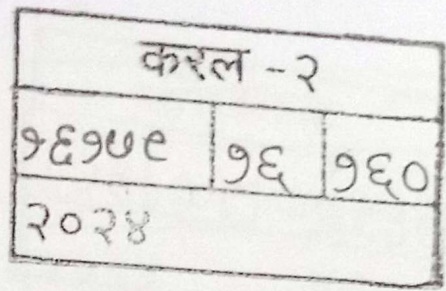 करल - २
१६१७९ १६ १६०
२०२४